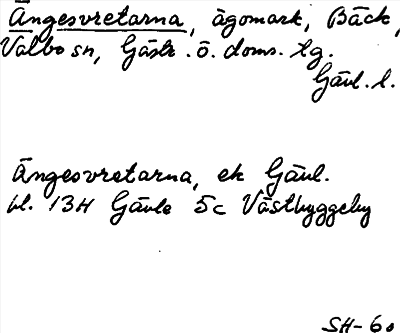 Ängesvretarna, ägomark, Bäck,
Valbo sn, Gästr. ö. doms. tg.
Gävl. l.
Ängesvretarna, ek Gävl.
bl. 13H Gävle 5c Västbyggeby
SH-60